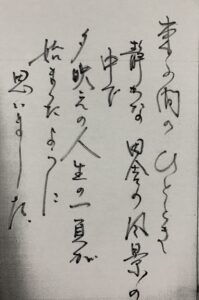 束の間のひととき
静かな田舎の風景の
中で
夕映えの人生の一頁が
始まったように
思いました。